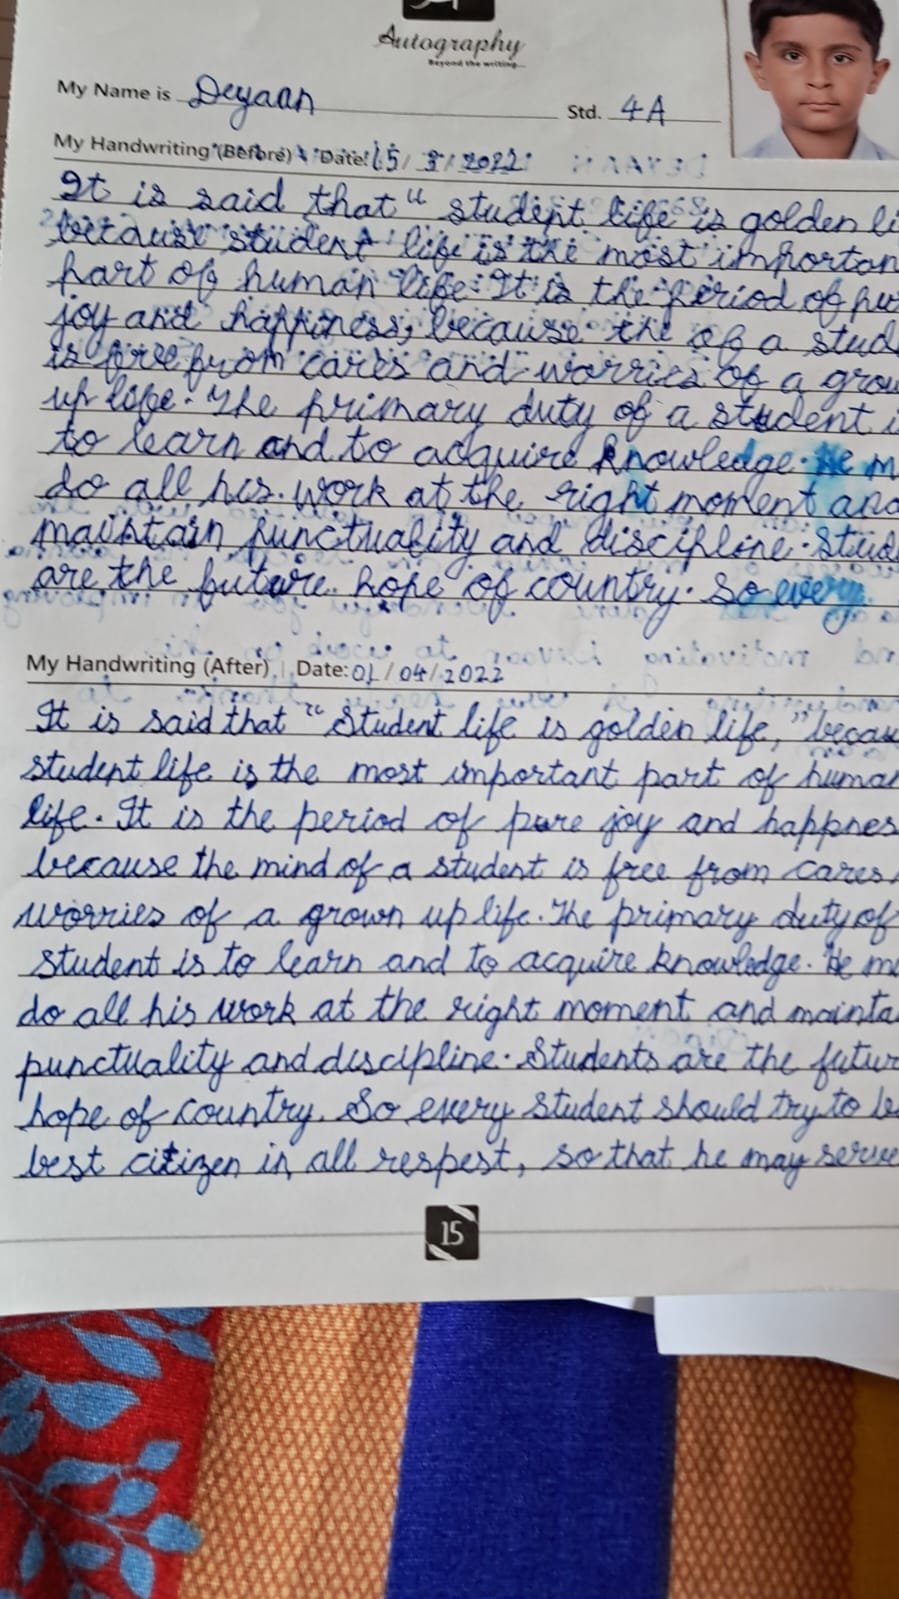 Autography
Beyond the writing...
My Name is Deyaan Std. 4A
My Handwriting (Before) Date: 15/3/2022
It is said that " student life is golden li
because student life is the most importan
part of human life. It is the period of pu
joy and happiness, because the of a stud
is free from cares and worries of a grow
up life. The primary duty of a student i
to learn and to acquire knowledge. He m
do all his work at the right moment and
maintain punctuality and discipline. Stud
are the future hope of country. So every
My Handwriting (After) Date: 01/04/2022
It is said that "Student life is golden life," becau
student life is the most important part of human
life. It is the period of pure joy and happnes
because the mind of a student is free from cares
worries of a grown up life. The primary duty of
student is to learn and to acquire knowledge. He m
do all his work at the right moment and mainta
punctuality and discipline. Students are the futur
hope of country. So every student should try to be
best citizen in all respest, so that he may serve
15